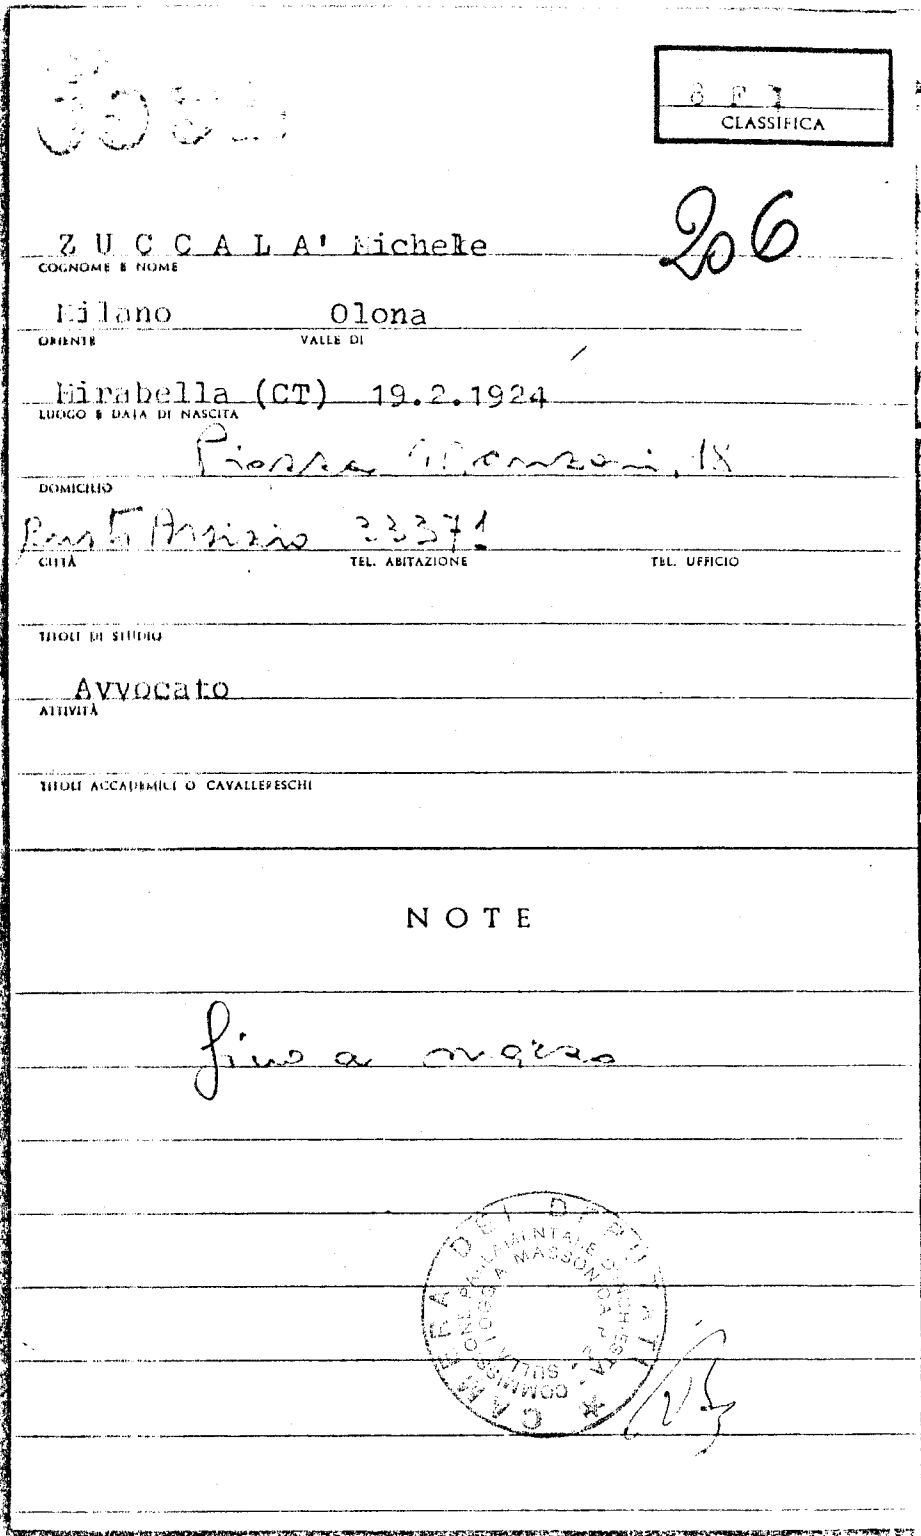 CLASSIFICA
206
Z U C C A L A' Michele
COGNOME E NOME
Milano Olona
ORIENTE VALLE DI
Mirabella (CT) 19.2.1924
LUOGO E DATA DI NASCITA
Piazza Manzoni, 18
DOMICILIO
Busto Arsizio 33371
CITTÀ TEL. ABITAZIONE TEL. UFFICIO
TITOLI DI STUDIO
Avvocato
ATTIVITÀ
TITOLI ACCADEMICI O CAVALLERESCHI
NOTE
fino a marzo
CAMERA DEI DEPUTATI
COMMISSIONE PARLAMENTARE D'INCHIESTA - SULLA LOGGIA MASSONICA P2